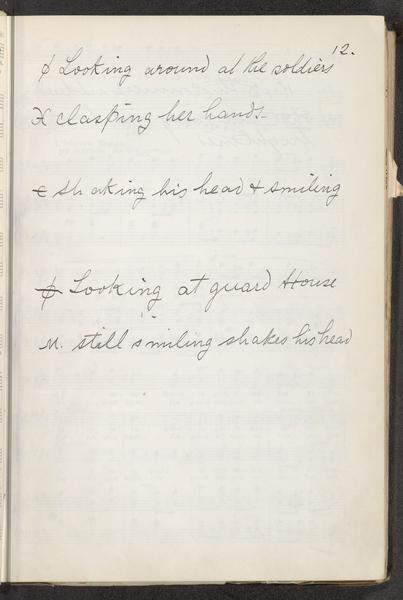 12.
ϕ Looking around at the soldiers
X clasping her hands-
є shaking his head + smiling
ϕ Looking at guard House
M. still smiling shakes his head